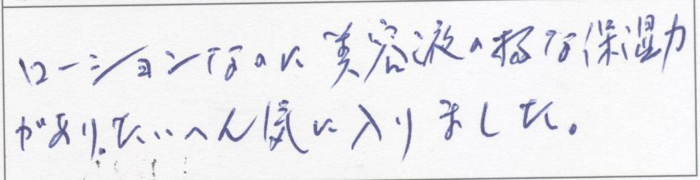 ローションなのに美容液の様な保湿力
があり、たいへん気に入りました。